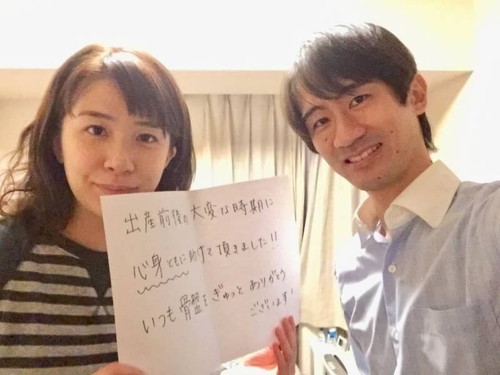 出産前後の大変な時期に
心身ともに助けて頂きました!!
いつも骨盤をぎゅっとありがとう
ございます!